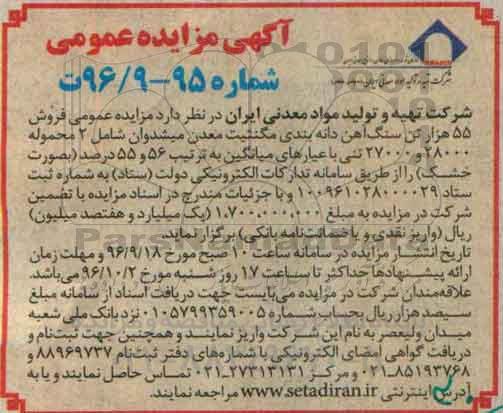 آگهی مزایده عمومی
شماره ۹۵-۹۶/۹ت
شرکت تهیه و تولید مواد معدنی ایران در نظر دارد مزایده عمومی فروش
۵۵ هزار تن سنگ‌آهن دانه بندی مگنتیت معدن میشدوان شامل ۲ محموله
۲۸۰۰۰ و ۲۷۰۰۰ تنی با عیارهای میانگین به ترتیب ۵۶ و ۵۵ درصد (بصورت
خشک) را از طریق سامانه تدارکات الکترونیکی دولت (ستاد) به شماره ثبت
ستاد ۱۰۰۹۶۱۰۲۸۰۰۰۰۲۹ و با جزئیات مندرج در اسناد مزایده با تضمین
شرکت در مزایده به مبلغ ۱،۷۰۰،۰۰۰،۰۰۰ (یک میلیارد و هفتصد میلیون)
ریال (واریز نقدی و یا ضمانت‌نامه بانکی) برگزار نماید.
تاریخ انتشار مزایده در سامانه ساعت ۱۰ صبح مورخ ۹۶/۹/۱۸ و مهلت زمان
ارائه پیشنهادها حداکثر تا ساعت ۱۷ روز شنبه مورخ ۹۶/۱۰/۲ می‌باشد.
علاقه‌مندان شرکت در مزایده می‌بایست جهت دریافت اسناد از سامانه مبلغ
سیصد هزار ریال بحساب شماره ۰۱۰۵۷۹۹۳۵۹۰۰۵ نزد بانک ملی شعبه
میدان ولیعصر به نام این شرکت واریز نمایند و همچنین جهت ثبت‌نام و
دریافت گواهی امضای الکترونیکی با شماره‌های دفتر ثبت‌نام ۸۸۹۶۹۷۳۷ و
۸۵۱۹۳۷۶۸-۰۲۱ و مرکز ۲۷۳۱۳۱۳۱-۰۲۱ تماس حاصل نمایند و یا به
آدرس اینترنتی www.setadiran.ir مراجعه نمایند.